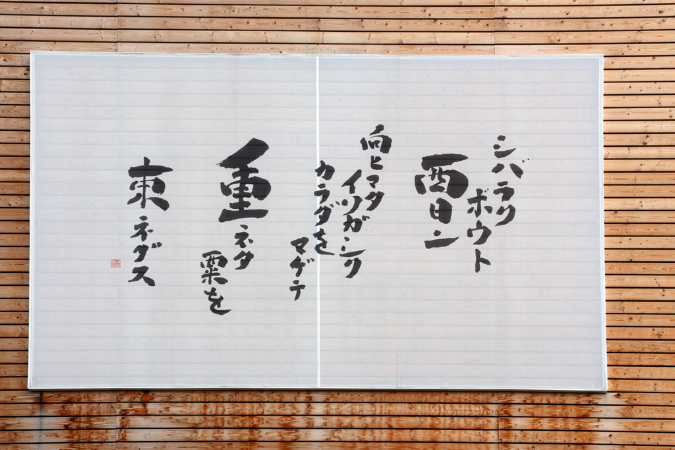 シバラク
ボウト
西日ニ
向ヒマタ
イソガシク
カラダを
マゲテ
重ネタ
粟を
束ネダス